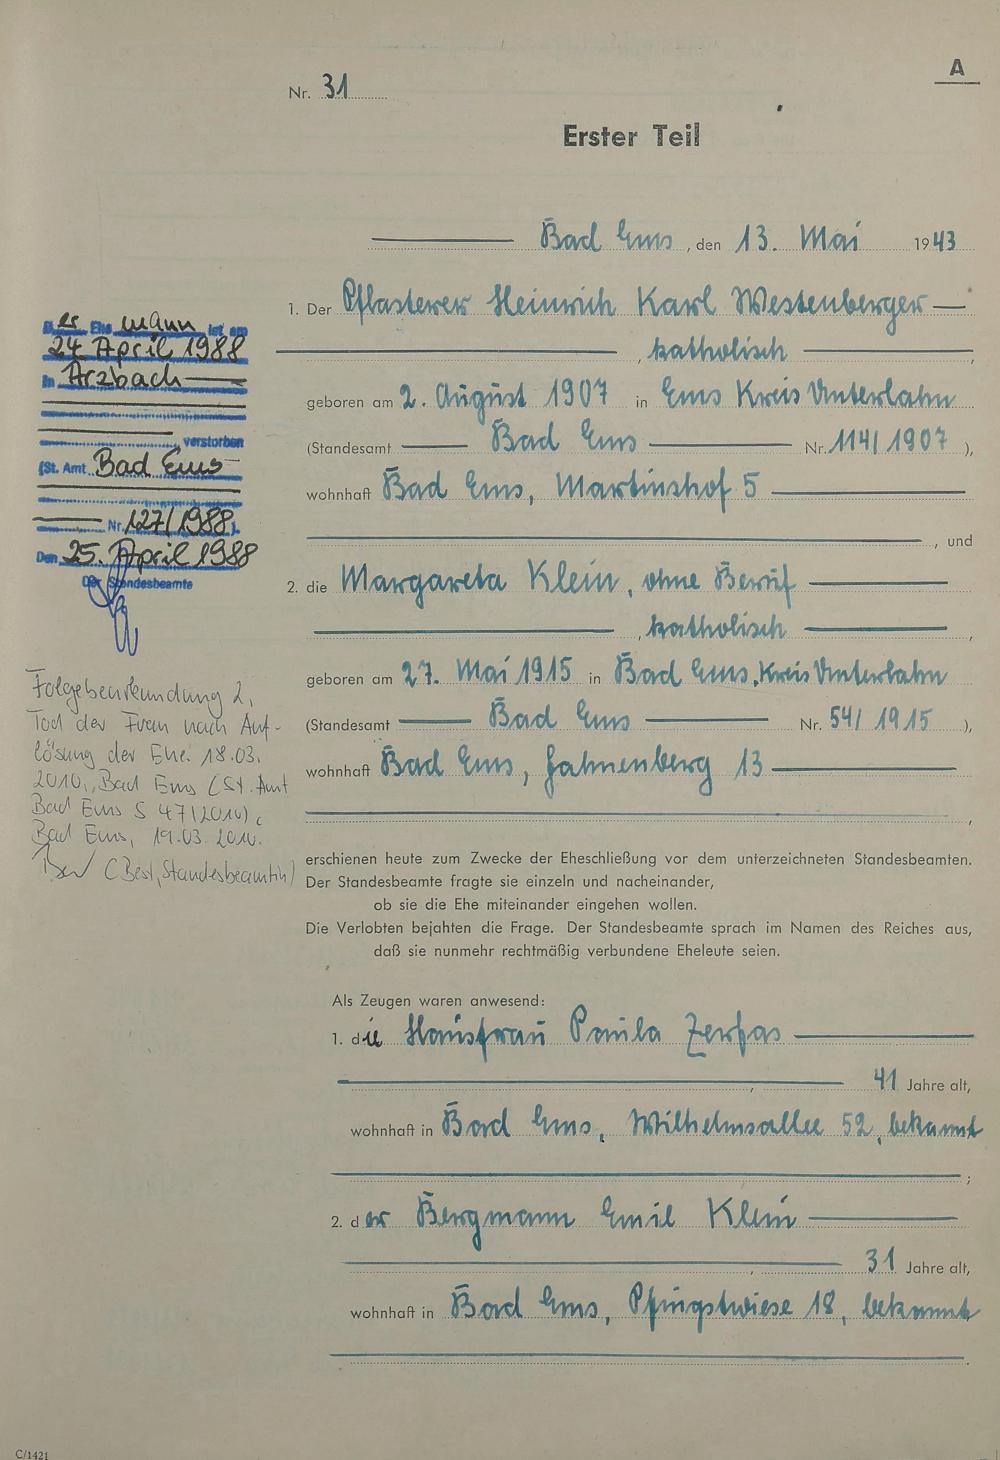 A
Nr. 31
Erster Teil
Bad Ems, den 13. Mai 1943
1. Der Pflasterer Heinrich Karl Westenberger
, katholisch,
geboren am 2. August 1907 in Ems Kreis Unterlahn
(Standesamt Bad Ems Nr. 114/1907),
wohnhaft Bad Ems, Martinshof 5
, und
2. die Margareta Klein, ohne Beruf
, katholisch,
geboren am 27. Mai 1915 in Bad Ems, Kreis Unterlahn
(Standesamt Bad Ems Nr. 54/1915),
wohnhaft Bad Ems, Hahnenberg 13
,
erschienen heute zum Zwecke der Eheschließung vor dem unterzeichneten Standesbeamten.
Der Standesbeamte fragte sie einzeln und nacheinander,
ob sie die Ehe miteinander eingehen wollen.
Die Verlobten bejahten die Frage. Der Standesbeamte sprach im Namen des Reiches aus,
daß sie nunmehr rechtmäßig verbundene Eheleute seien.
Als Zeugen waren anwesend:
1. die Hausfrau Paula Zerfas
, 41 Jahre alt,
wohnhaft in Bad Ems, Wilhelmsallee 52, bekannt
;
2. der Bergmann Emil Klein
, 31 Jahre alt,
wohnhaft in Bad Ems, Pfingstwiese 18, bekannt
.
Der Ehemann ist am
24 April 1988
in Arzbach
, verstorben
(St. Amt Bad Ems
Nr. 127/1988).
Den 25. April 1988
Der Standesbeamte
Folgebeurkundung 2,
Tod der Frau nach Auf-
lösung der Ehe: 18.03.
2010, Bad Ems (St. Amt
Bad Ems S 47/2010),
Bad Ems, 19.03.2010.
(Best, Standesbeamtin)
C/1421